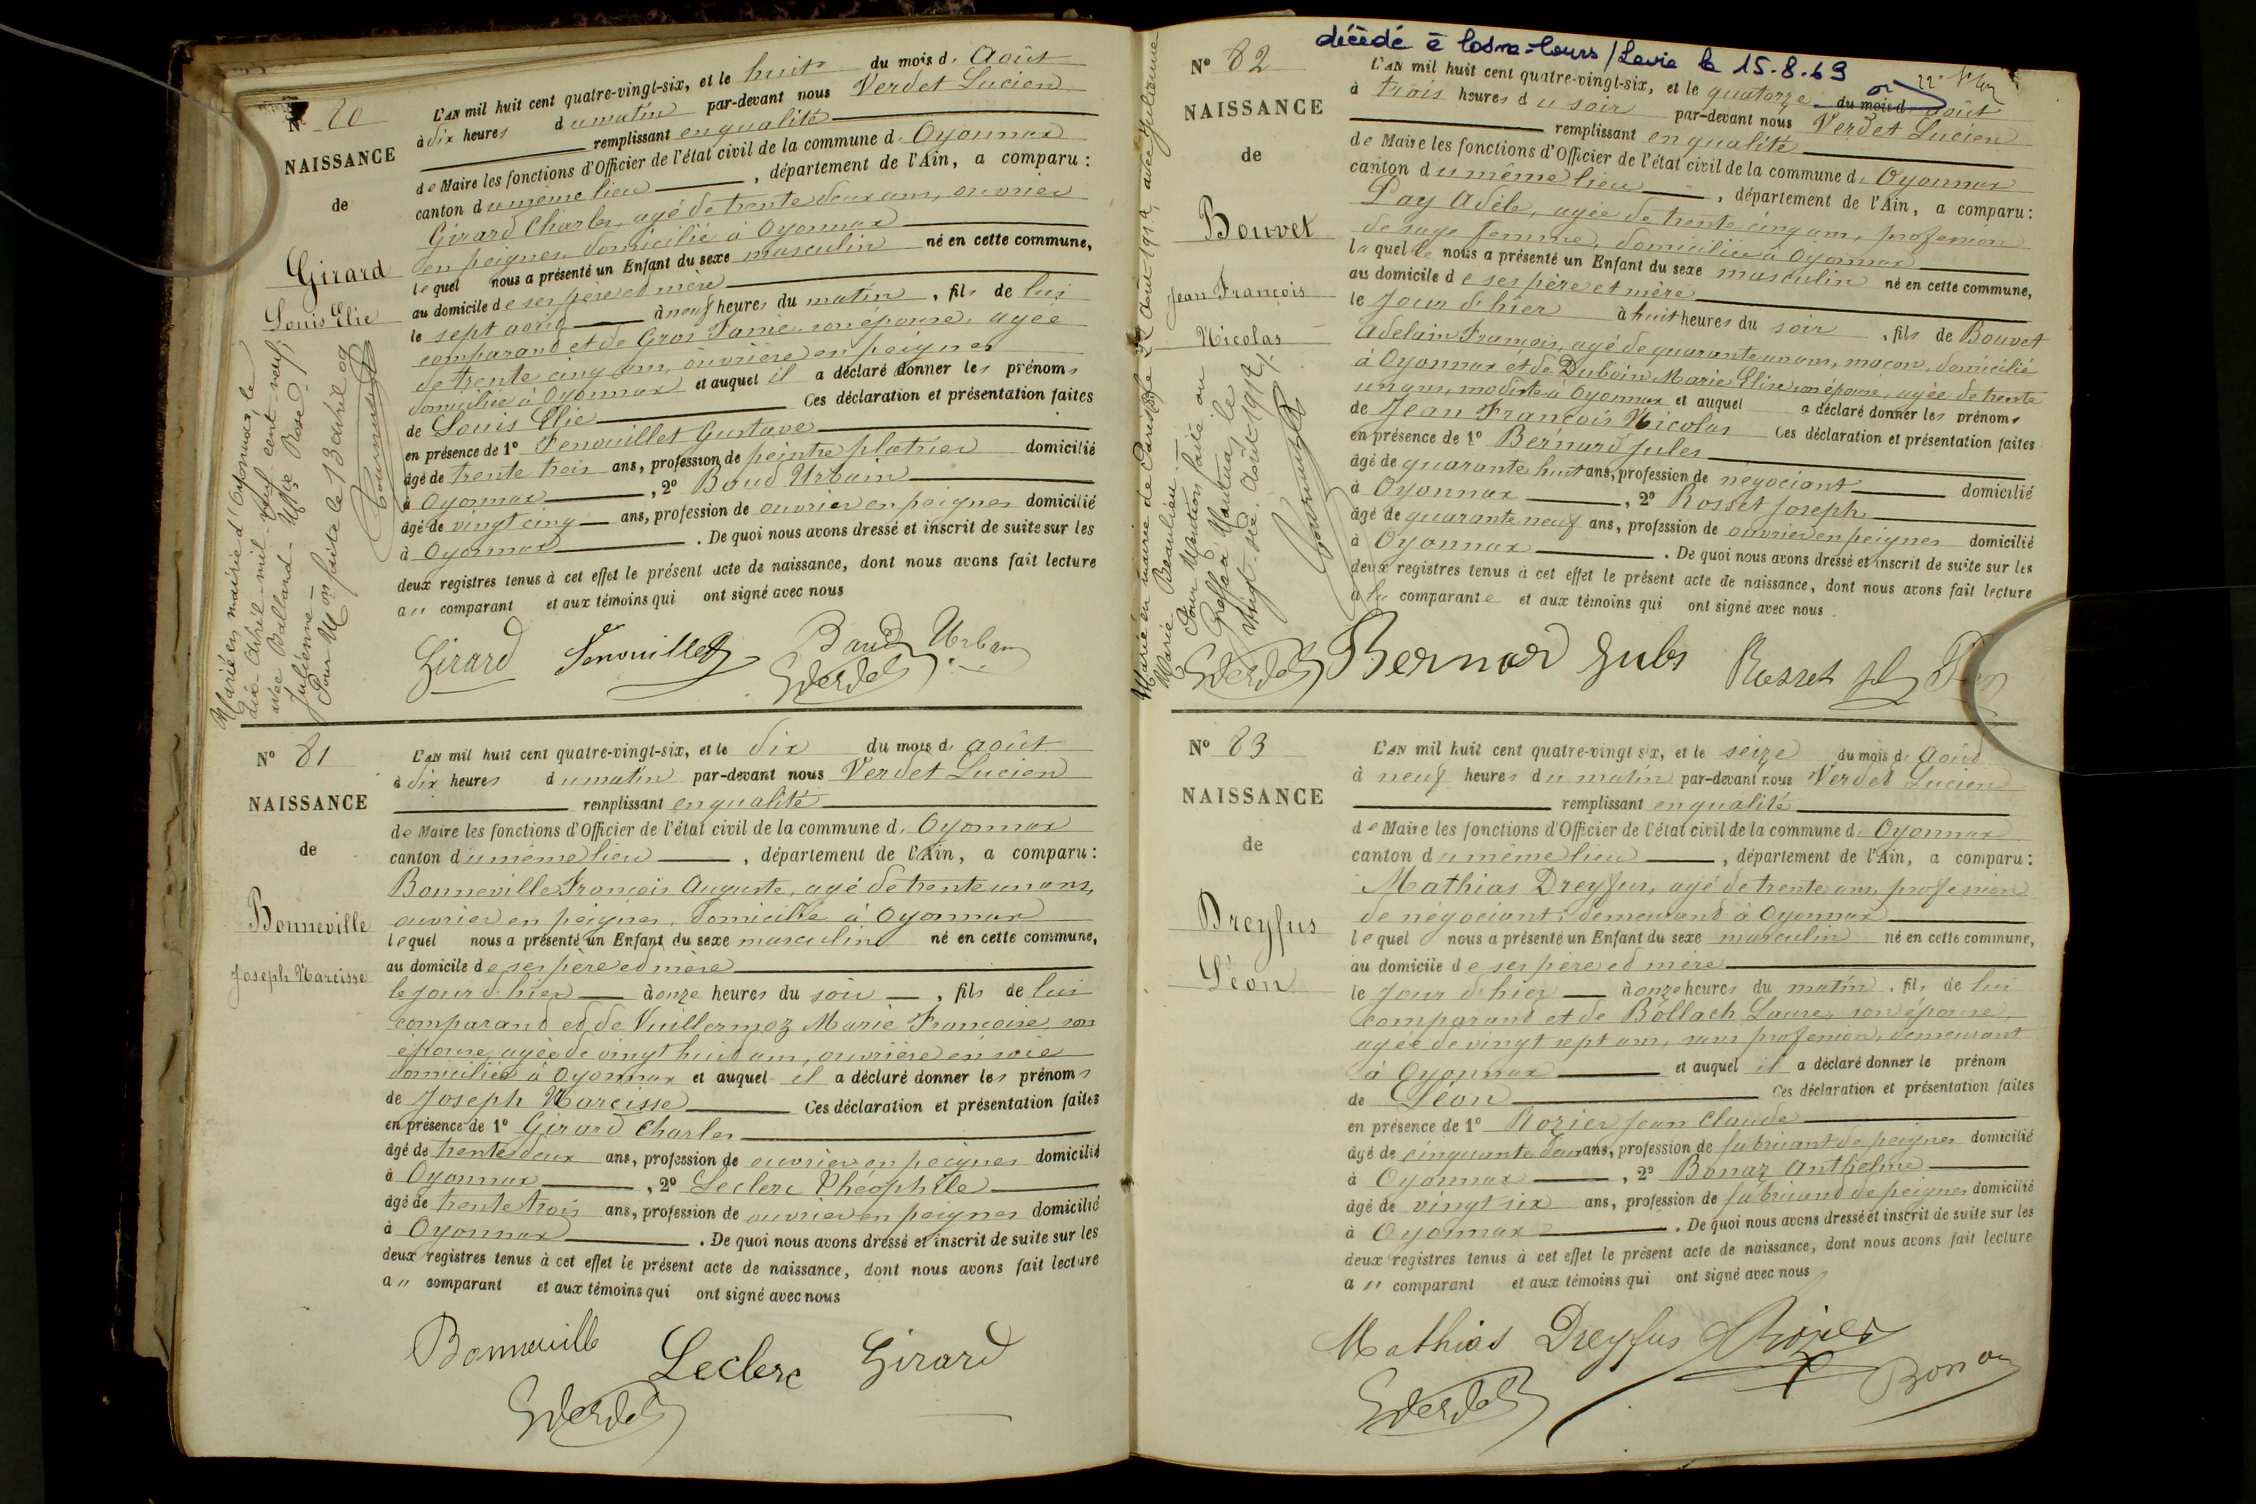 N° 80
NAISSANCE
de
Girard
Louis Elie
L'AN mil huit cent quatre-vingt-six, et le huit du mois d. Août
à dix heures du matin par-devant nous Verdet Lucien
remplissant en qualité
de Maire les fonctions d'Officier de l'état civil de la commune d. Oyonnax
canton du même lieu, département de l'Ain, a comparu:
Girard Charles, agé de trente deux ans, ouvrier
en peignes, domicilié à Oyonnax
lequel nous a présenté un Enfant du sexe masculin né en cette commune,
au domicile de ses père et mère
le sept août à neuf heures du matin, fils de lui
comparant et de Gros Fanie son épouse, agée
de trente cinq ans, ouvrière en peignes
domiciliée à Oyonnax et auquel il a déclaré donner les prénoms
de Louis Elie Ces déclaration et présentation faites
en présence de 1° Fenouillet Gustave
âgé de trente trois ans, profession de peintre platrier domicilié
à Oyonnax, 2° Baud Urbain
âgé de vingt cinq ans, profession de ouvrier en peignes domicilié
à Oyonnax. De quoi nous avons dressé et inscrit de suite sur les
deux registres tenus à cet effet le présent acte de naissance, dont nous avons fait lecture
a " comparant et aux témoins qui ont signé avec nous
Girard Fenouillet Baud Urbain
Verdet
Marié en mairie d'Oyonnax le
dix Avril mil neuf cent neuf
avec Balland Marie Rose
Julienne
Pour Mon faite le 13 avril 09
N° 81
NAISSANCE
de
Bonneville
Joseph Narcisse
L'AN mil huit cent quatre-vingt-six, et le dix du mois d. août
à dix heures du matin par-devant nous Verdet Lucien
remplissant en qualité
de Maire les fonctions d'Officier de l'état civil de la commune d. Oyonnax
canton du même lieu, département de l'Ain, a comparu:
Bonneville François Auguste, agé de trente un ans,
ouvrier en peignes, domicilié à Oyonnax
lequel nous a présenté un Enfant du sexe masculin né en cette commune,
au domicile de ses père et mère
le jour d'hier à onze heures du soir, fils de lui
comparant et de Vuillermoz Marie Françoise son
épouse, agée de vingt huit ans, ouvrière en soie
domiciliée à Oyonnax et auquel il a déclaré donner les prénoms
de Joseph Narcisse Ces déclaration et présentation faites
en présence de 1° Girard Charles
âgé de trente deux ans, profession de ouvrier en peignes domicilié
à Oyonnax, 2° Leclerc Théophile
âgé de trente trois ans, profession de ouvrier en peignes domicilié
à Oyonnax. De quoi nous avons dressé et inscrit de suite sur les
deux registres tenus à cet effet le présent acte de naissance, dont nous avons fait lecture
a " comparant et aux témoins qui ont signé avec nous
Bonneville Leclerc Girard
Verdet
décédé à le 15.8.69
N° 82
NAISSANCE
de
Bouvet
Jean François
Nicolas
L'AN mil huit cent quatre-vingt-six, et le quatorze du mois d août
à trois heures du soir par-devant nous Verdet Lucien
remplissant en qualité
de Maire les fonctions d'Officier de l'état civil de la commune d. Oyonnax
canton du même lieu, département de l'Ain, a comparu:
Pay Adèle, agée de trente cinq ans, profession
de sage femme, domiciliée à Oyonnax
laquelle nous a présenté un Enfant du sexe masculin né en cette commune,
au domicile de ses père et mère
le jour d'hier à huit heures du soir, fils de Bouvet
Adelain François, agé de quarante un ans, maçon, domicilié
à Oyonnax et de Duboin Marie Elise son épouse, agée de trente
un ans, modiste à Oyonnax et auquel a déclaré donner les prénoms
de Jean François Nicolas Ces déclaration et présentation faites
en présence de 1° Bernard Jules
âgé de quarante huit ans, profession de négociant domicilié
à Oyonnax, 2° Rosset Joseph
âgé de quarante neuf ans, profession de ouvrier en peignes domicilié
à Oyonnax. De quoi nous avons dressé et inscrit de suite sur les
deux registres tenus à cet effet le présent acte de naissance, dont nous avons fait lecture
à la comparante et aux témoins qui ont signé avec nous
Verdet Bernard Jules Rosset
Marié en mairie de août 1912 avec Julienne
Marie Beaulieu
Pour Mention faite au
Greffe à Nantua le
vingt-six Août 1912
N° 83
NAISSANCE
de
Dreyfus
Léon
L'AN mil huit cent quatre-vingt six, et le seize du mois d. Août
à neuf heures du matin par-devant nous Verdet Lucien
remplissant en qualité
de Maire les fonctions d'Officier de l'état civil de la commune d. Oyonnax
canton du même lieu, département de l'Ain, a comparu:
Mathias Dreyfus, agé de trente ans, profession
de négociant, demeurant à Oyonnax
lequel nous a présenté un Enfant du sexe masculin né en cette commune,
au domicile de ses père et mère
le jour d'hier à onze heures du matin, fils de lui
comparant et de Bollach Laure, son épouse,
agée de vingt sept ans, sans profession, demeurant
à Oyonnax et auquel il a déclaré donner le prénom
de Léon Ces déclaration et présentation faites
en présence de 1° Rozier Jean Claude
âgé de cinquante deux ans, profession de fabricant de peignes domicilié
à Oyonnax, 2° Bonaz Anthelme
âgé de vingt six ans, profession de fabricant de peignes domicilié
à Oyonnax. De quoi nous avons dressé et inscrit de suite sur les
deux registres tenus à cet effet le présent acte de naissance, dont nous avons fait lecture
a " comparant et aux témoins qui ont signé avec nous
Mathias Dreyfus Rozier
Verdet Bonaz